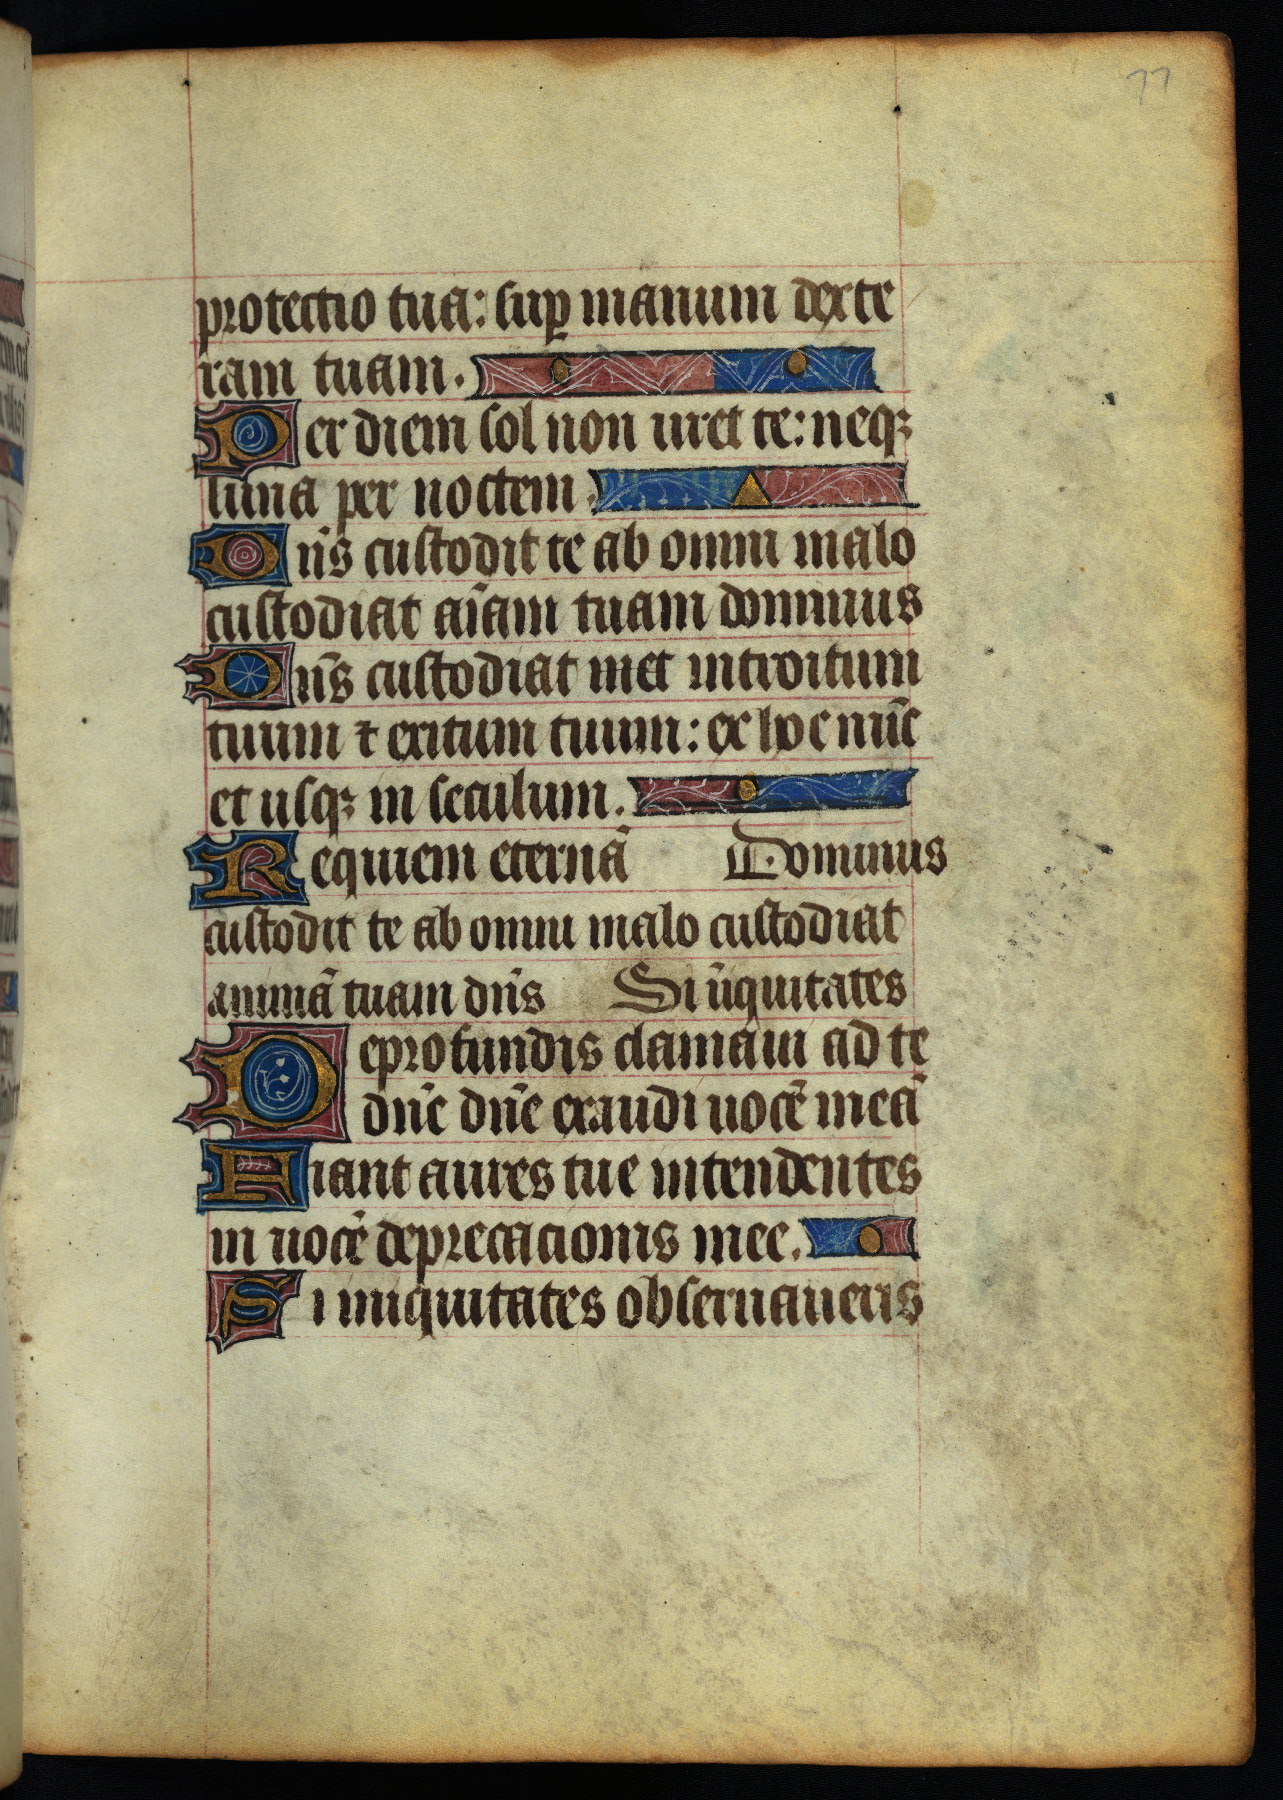 77
protectio tua: sup manum dexte
ram tuam.
Per diem sol non uret te: neqꝫ
luna per noctem.
Dn̄s custodit te ab omni malo
custodiat aīam tuam dominus
Dn̄s custodiat met introitum
tuum ⁊ exitum tuum: ex hoc nūc
et usqꝫ in seculum.
Requiem eternā Dominus
custodit te ab omni malo custodiat
animā tuam dn̄s Si īiquitates
De profundis clamaui ad te
dn̄e dn̄e exaudi uocē meā
Fiant aures tue intendentes
in uocē deprecacionis mee.
Si iniquitates obseruaueris